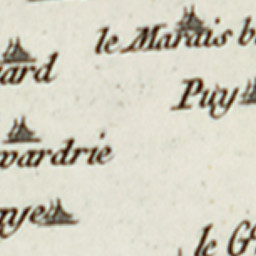 le Marais b
iard
Puy
vardrie
aye
le G